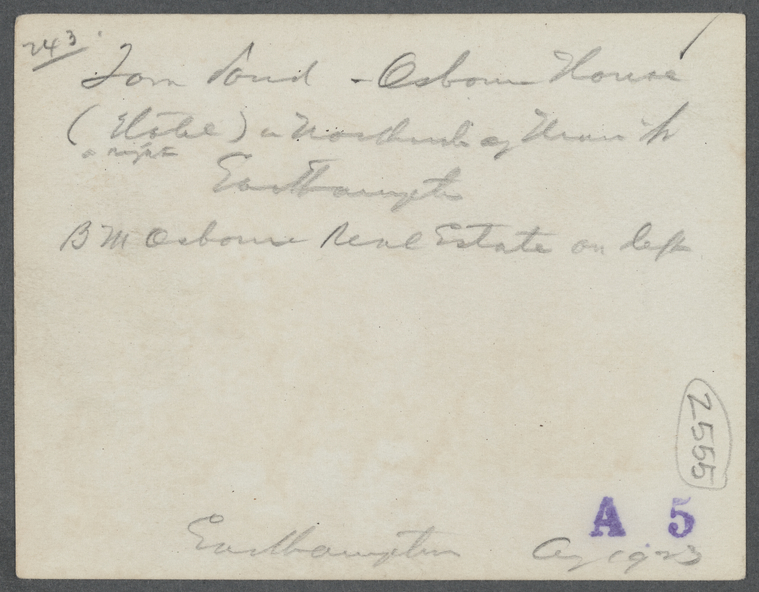 243
Town Pond - Osborne House
(Hotel) in North end of Main St
on right
Easthampton
B M Osborne Real Estate on left
2555
A 5
Easthampton Aug 1923